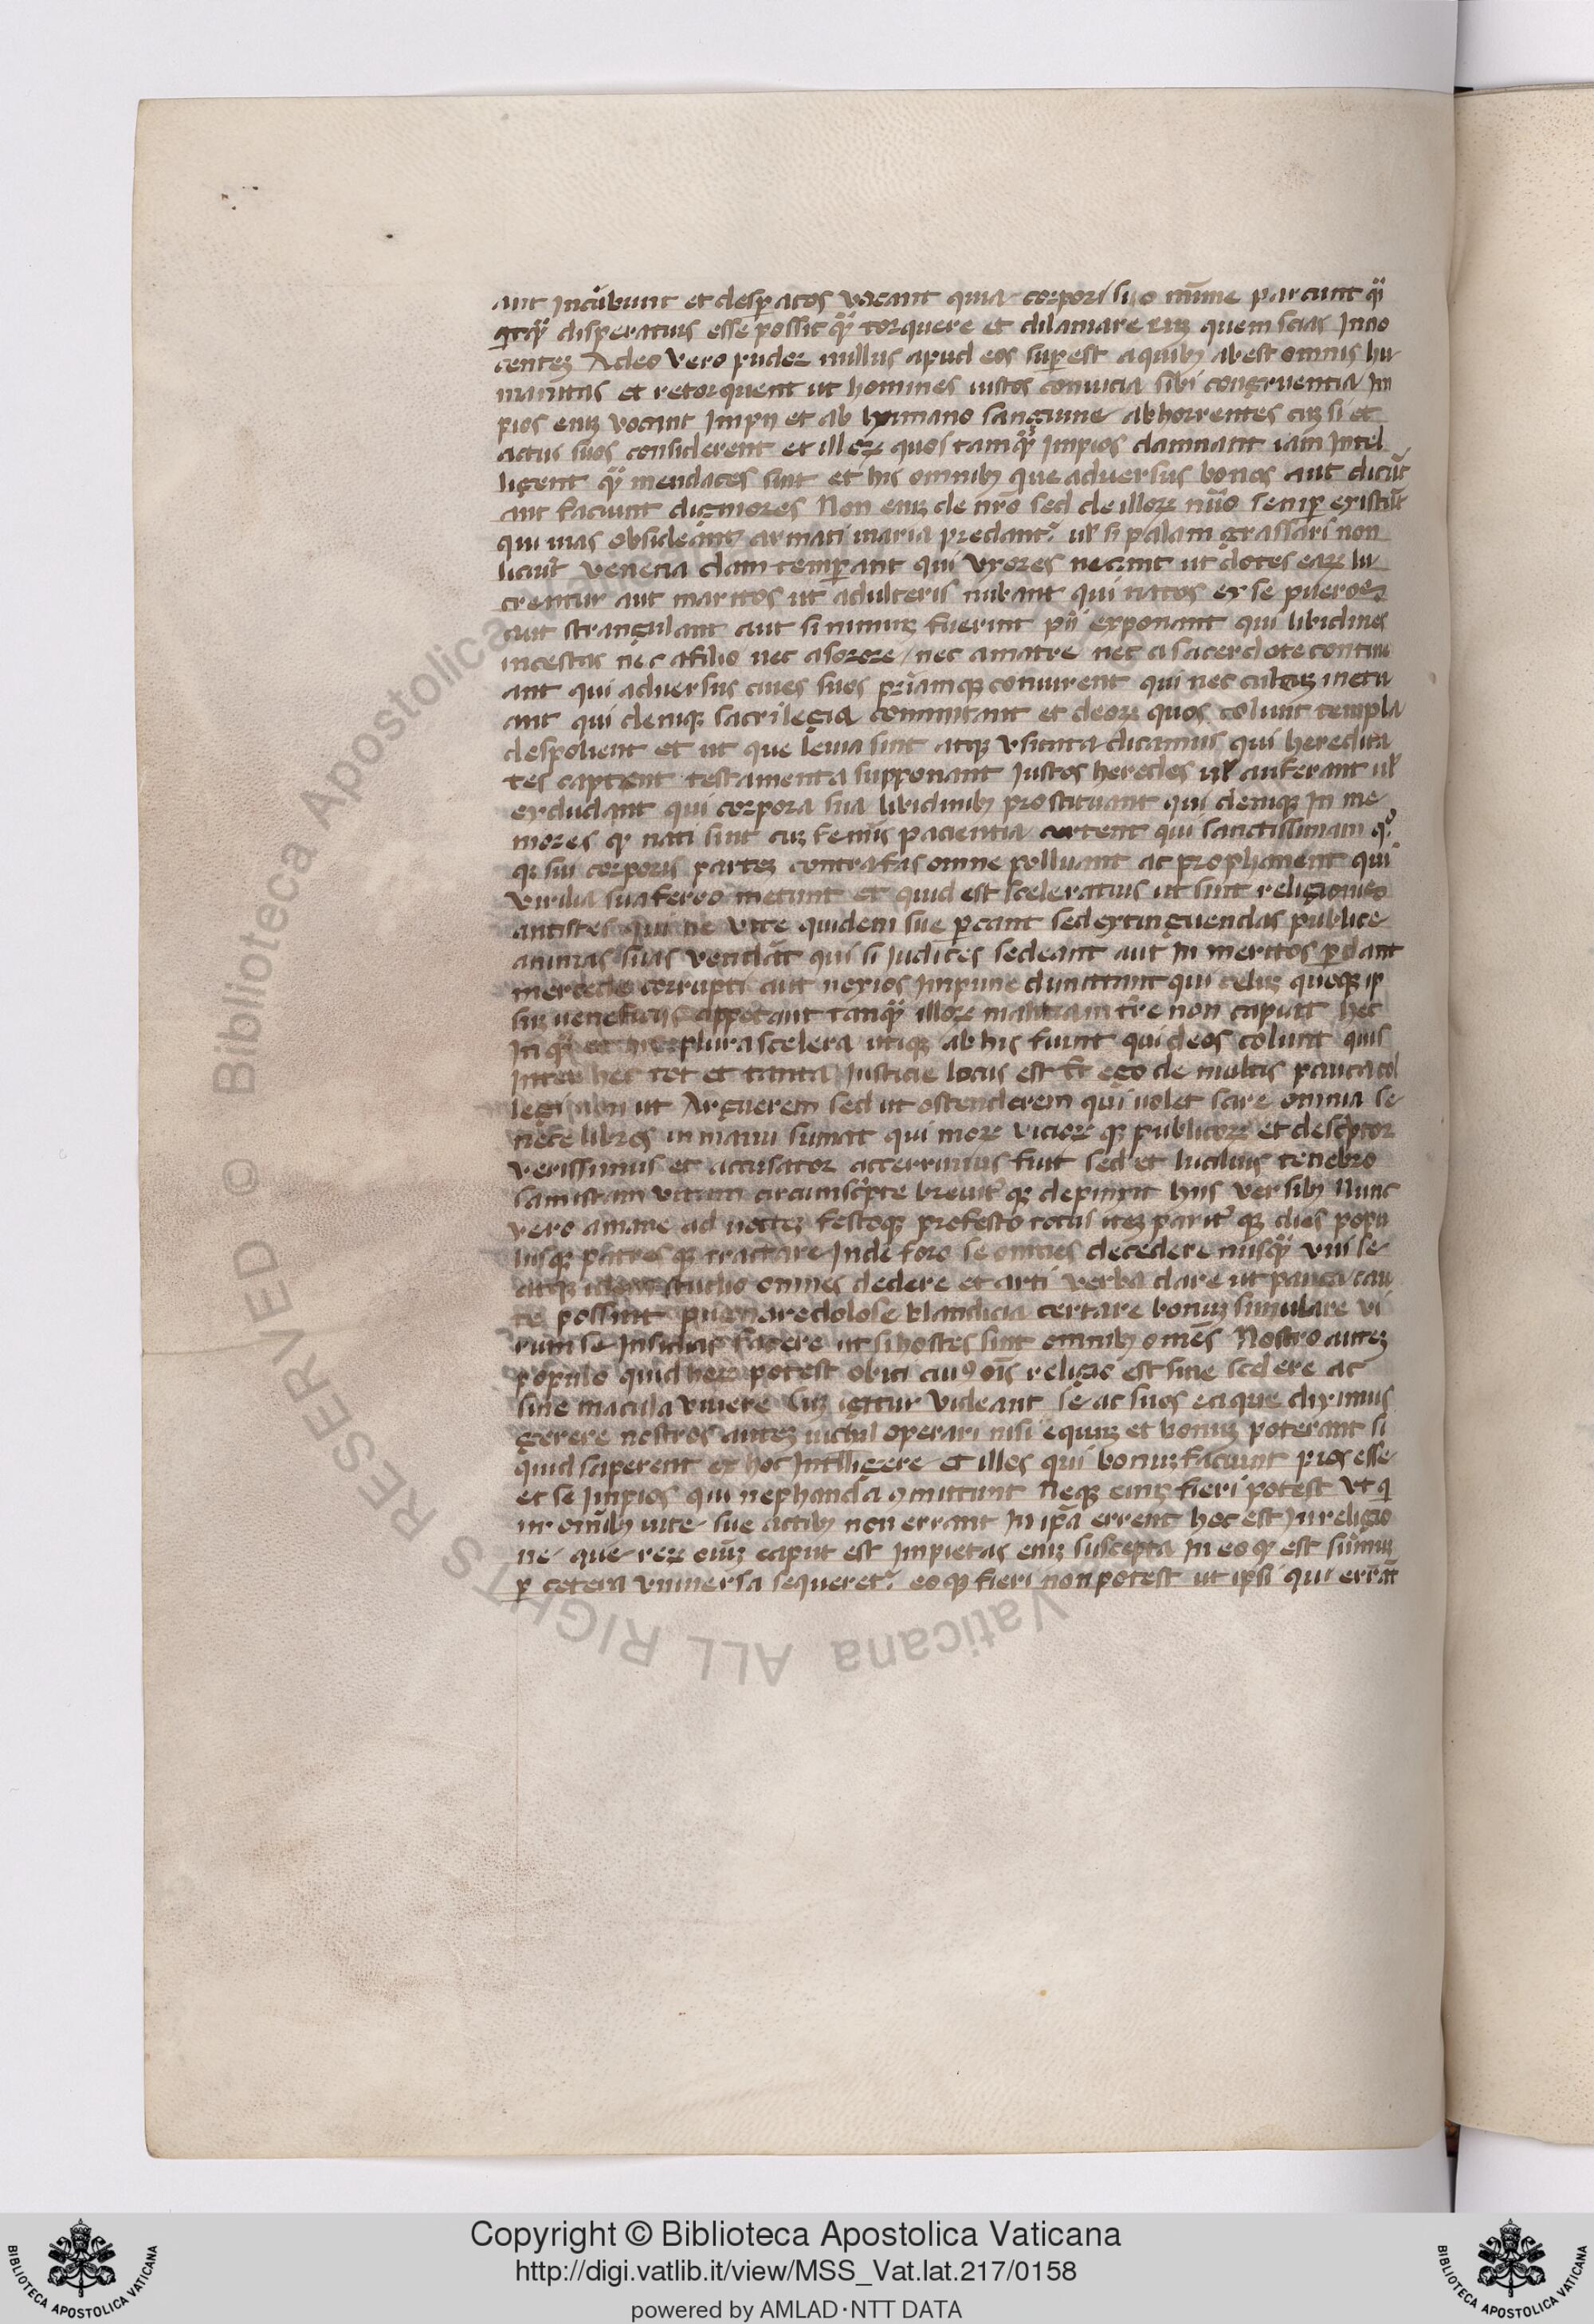 aut incūbunt et desꝑatos vocant quia corpori suo mīnime parcunt qͣ
qͣtqͣ disperatius esse possit qͣ torquere et dilaniare euꝫ quem scias Inno
centeꝫ Adeo vero pudor nullus apud eos suꝑest a quibꝫ abest omnis hu
manitas et retorquent ut homines iustos conuicia sibi congruentia Im
pios eniꝫ vocant Impij et ab humano sanguine abhorrentes cuꝫ si et
actus suos considerent et illoꝝ quos tamqͣ Impios damnant iam Intel
ligent qͣ mendaces sint et his omnibꝫ que adversus bonos aut dicūt
aut faciunt digniores Non eniꝫ de nr̄o sed de illoꝝ nūo semꝑ existūt
qui uias obsideant armati maria predantᷣ ul̓ si palam grassari non
licuit venena clam temꝑant qui vxores necant ut dotes eaꝝ lu
crentur aut maritos ut adulteris nubant qui natos ex se pueros
aut strangulant aut si nimiuꝫ fuerint pij exponant qui libidines
incestas nec a filio nec a sorore nec a matre nec a sacerdote contine
ant qui adversus ciues suos priamqꝫ coniurent qui nec culeuꝫ metu
ant qui deniqꝫ sacrilegia committant et deoꝝ quos colunt templa
despolient et ut que leuia sint atqꝫ vsitata dicamus qui heredita
tes captent testamenta supponant Iustos heredes ul̓ auferant ul̓
excludant qui corpora sua libidinibꝫ prostituant qui deniqꝫ In me
mores qͥ nati sint cuꝫ feminis pacientia certent qui sanctissimam qͦ
qꝫ sui corporis parteꝫ contra fas omne polluant ac prophanent qui
virilia sua ferro metunt et quid est sceleratius ut sint religionis
antistes qui ne vite quidem sue ꝑcant sed extinguendas publice
animas suas vendāt qui si Iudices sedeant aut In meritos ꝑdant
mercede corrupti aut noxios Impune dimittant qui celuꝫ quoqꝫ ip
suꝫ veneficijs appetant tanqͣ illoꝝ malitiam tr̄e non capiat hec
Inqͣ et plura scelera utiqꝫ ab his fiunt qui deos colunt quis
Inter hec tot et tanta Iusticie locus est Et ego de multis pauca col
legi non ut Arguerem sed ut ostenderem qui uolet scire omnia se
nece libros in manu sumat qui moꝝ vicioꝝ qꝫ publicoꝝ et descͥptor
verissimus et accusator acerrimus fuit sed et lucilius tenebro
sam istam vitam circumscͥpte breuitᷣ qꝫ depinxit hijs versibꝫ Nunc
vero a mane ad nocteꝫ festoqꝫ profesto totus iteꝫ paritᷣ qꝫ dies popu
lusqꝫ patresqꝫ tractare Inde foro se omnes decedere nusqͣ vni se
atqꝫ studio omnes dedere et arti verba dare ut pauca cau
te possint pugnare dolose blandicia certare bonuꝫ simulare vi
rum se Insidias facere ut si hostes sint omnibꝫ om̄es Nostro auteꝫ
populo quid hoꝝ potest obici cuiꝰ oīs religio est sine scelere ac
sine macula viuere Cuꝫ igitur videant se ac suos ea que diximus
gerere nostros auteꝫ nichil operari nisi equuꝫ et bonuꝫ poterant si
quid saperent ex hoc Intelligere et illos qui bonuꝫ faciunt pios esse
et se Impios qui nephanda ꝯmittunt Neqꝫ eniꝫ fieri potest vt qͥ
in om̄ibꝫ vite sue actibꝫ non errant In ip̄a errent hoc est In religio
ne que reꝝ oīuꝫ caput est Impietas eniꝫ suscepta In eo qꝫ est sūmuꝫ
ꝑ cetera vniversa sequeretᷣ eoqꝫ fieri non potest ut ipsi qui errāt
© Biblioteca Apostolica Vaticana ALL RIGHTS RESERVED
Copyright © Biblioteca Apostolica Vaticana
http://digi.vatlib.it/view/MSS_Vat.lat.217/0158
powered by AMLAD·NTT DATA
BIBLIOTECA APOSTOLICA VATICANA
BIBLIOTECA APOSTOLICA VATICANA